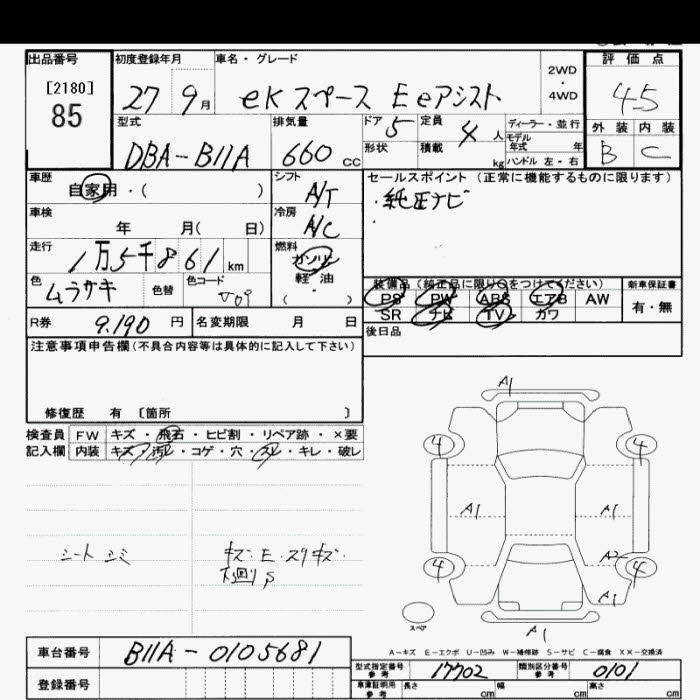 出品番号
[2180]
85
初度登録年月
27 9月
車名・グレード
eK スペース E eアシスト
2WD
・
4WD
評価点
4-5
外装 内装
B C
型式
DBA-B11A
排気量
660 cc
ドア 5
形状
定員 4 人
積載 kg
ディーラー・並行
モデル
年式 年
ハンドル 左・右
車歴
自家用・( )
シフト
A/T
セールスポイント (正常に機能するものに限ります)
・純正ナビ
車検
年 月( 日)
冷房
A/C
走行
1万5千861 km
燃料
ガソリン
軽油
( )
色
ムラサキ
色替
色コード
装備品(純正品に限り○をつけてください)
PS PW ABS エアB AW
SR ナビ TV カワ
新車保証書
有・無
R券 9.190 円
名変期限 月 日
後日品
注意事項申告欄(不具合内容等は具体的に記入して下さい)
修復歴 有 〔箇所 〕
検査員
記入欄
FW キズ・飛石・ヒビ割・リペア跡・×要
内装 キズ・汚レ・コゲ・穴・スレ・キレ・破レ
シート シミ
キズ・E・スリキズ・
下回りS
A1
4 4
A1 A1
A2
4 4
A1
スペア
A1
A-キズ E-エクボ U-凹み W-補修跡 S-サビ C-腐食 XX-交換済
車台番号
B11A-0105681
登録番号
型式指定番号
参考
17702
類別区分番号
参考
0101
車庫証明用
参考
長さ cm 幅 cm 高さ cm